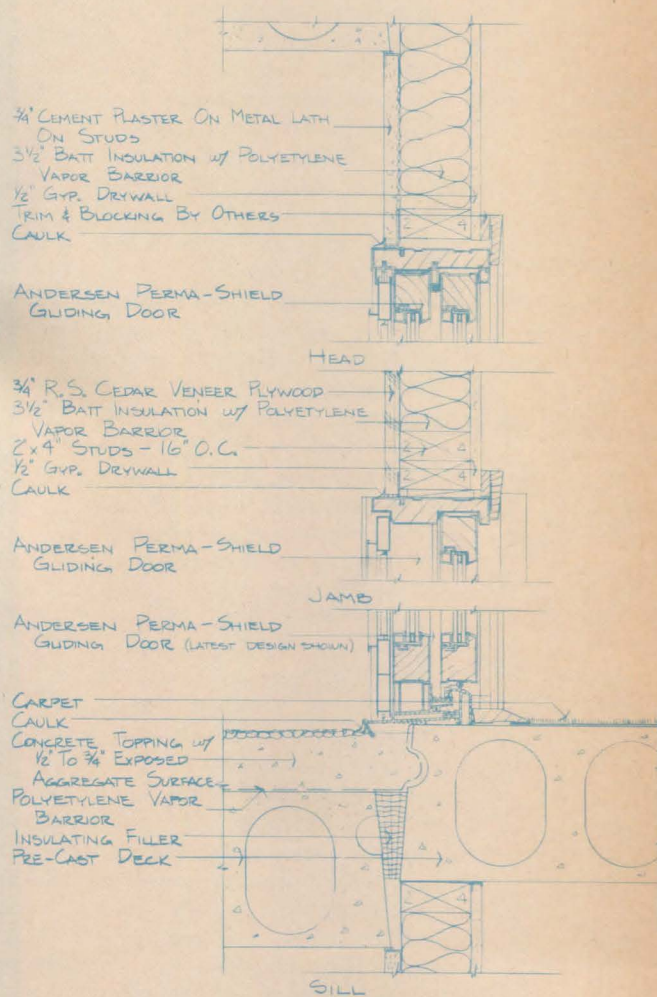 3/4" CEMENT PLASTER ON METAL LATH
ON STUDS
3 1/2" BATT INSULATION W/ POLYETYLENE
VAPOR BARRIER
1/2" GYP. DRYWALL
TRIM & BLOCKING BY OTHERS
CAULK
2 4
ANDERSEN PERMA-SHIELD
GLIDING DOOR
HEAD
3/4" R.S. CEDAR VENEER PLYWOOD
3 1/2" BATT INSULATION W/ POLYETYLENE
VAPOR BARRIER
2" x 4" STUDS - 16" O.C.
1/2" GYP. DRYWALL
CAULK
2 4
2 4
ANDERSEN PERMA-SHIELD
GLIDING DOOR
JAMB
ANDERSEN PERMA-SHIELD
GLIDING DOOR (LATEST DESIGN SHOWN)
CARPET
CAULK
CONCRETE TOPPING W/
1/2" TO 3/4" EXPOSED
AGGREGATE SURFACE
POLYETYLENE VAPOR
BARRIER
INSULATING FILLER
PRE-CAST DECK
2 4
SILL